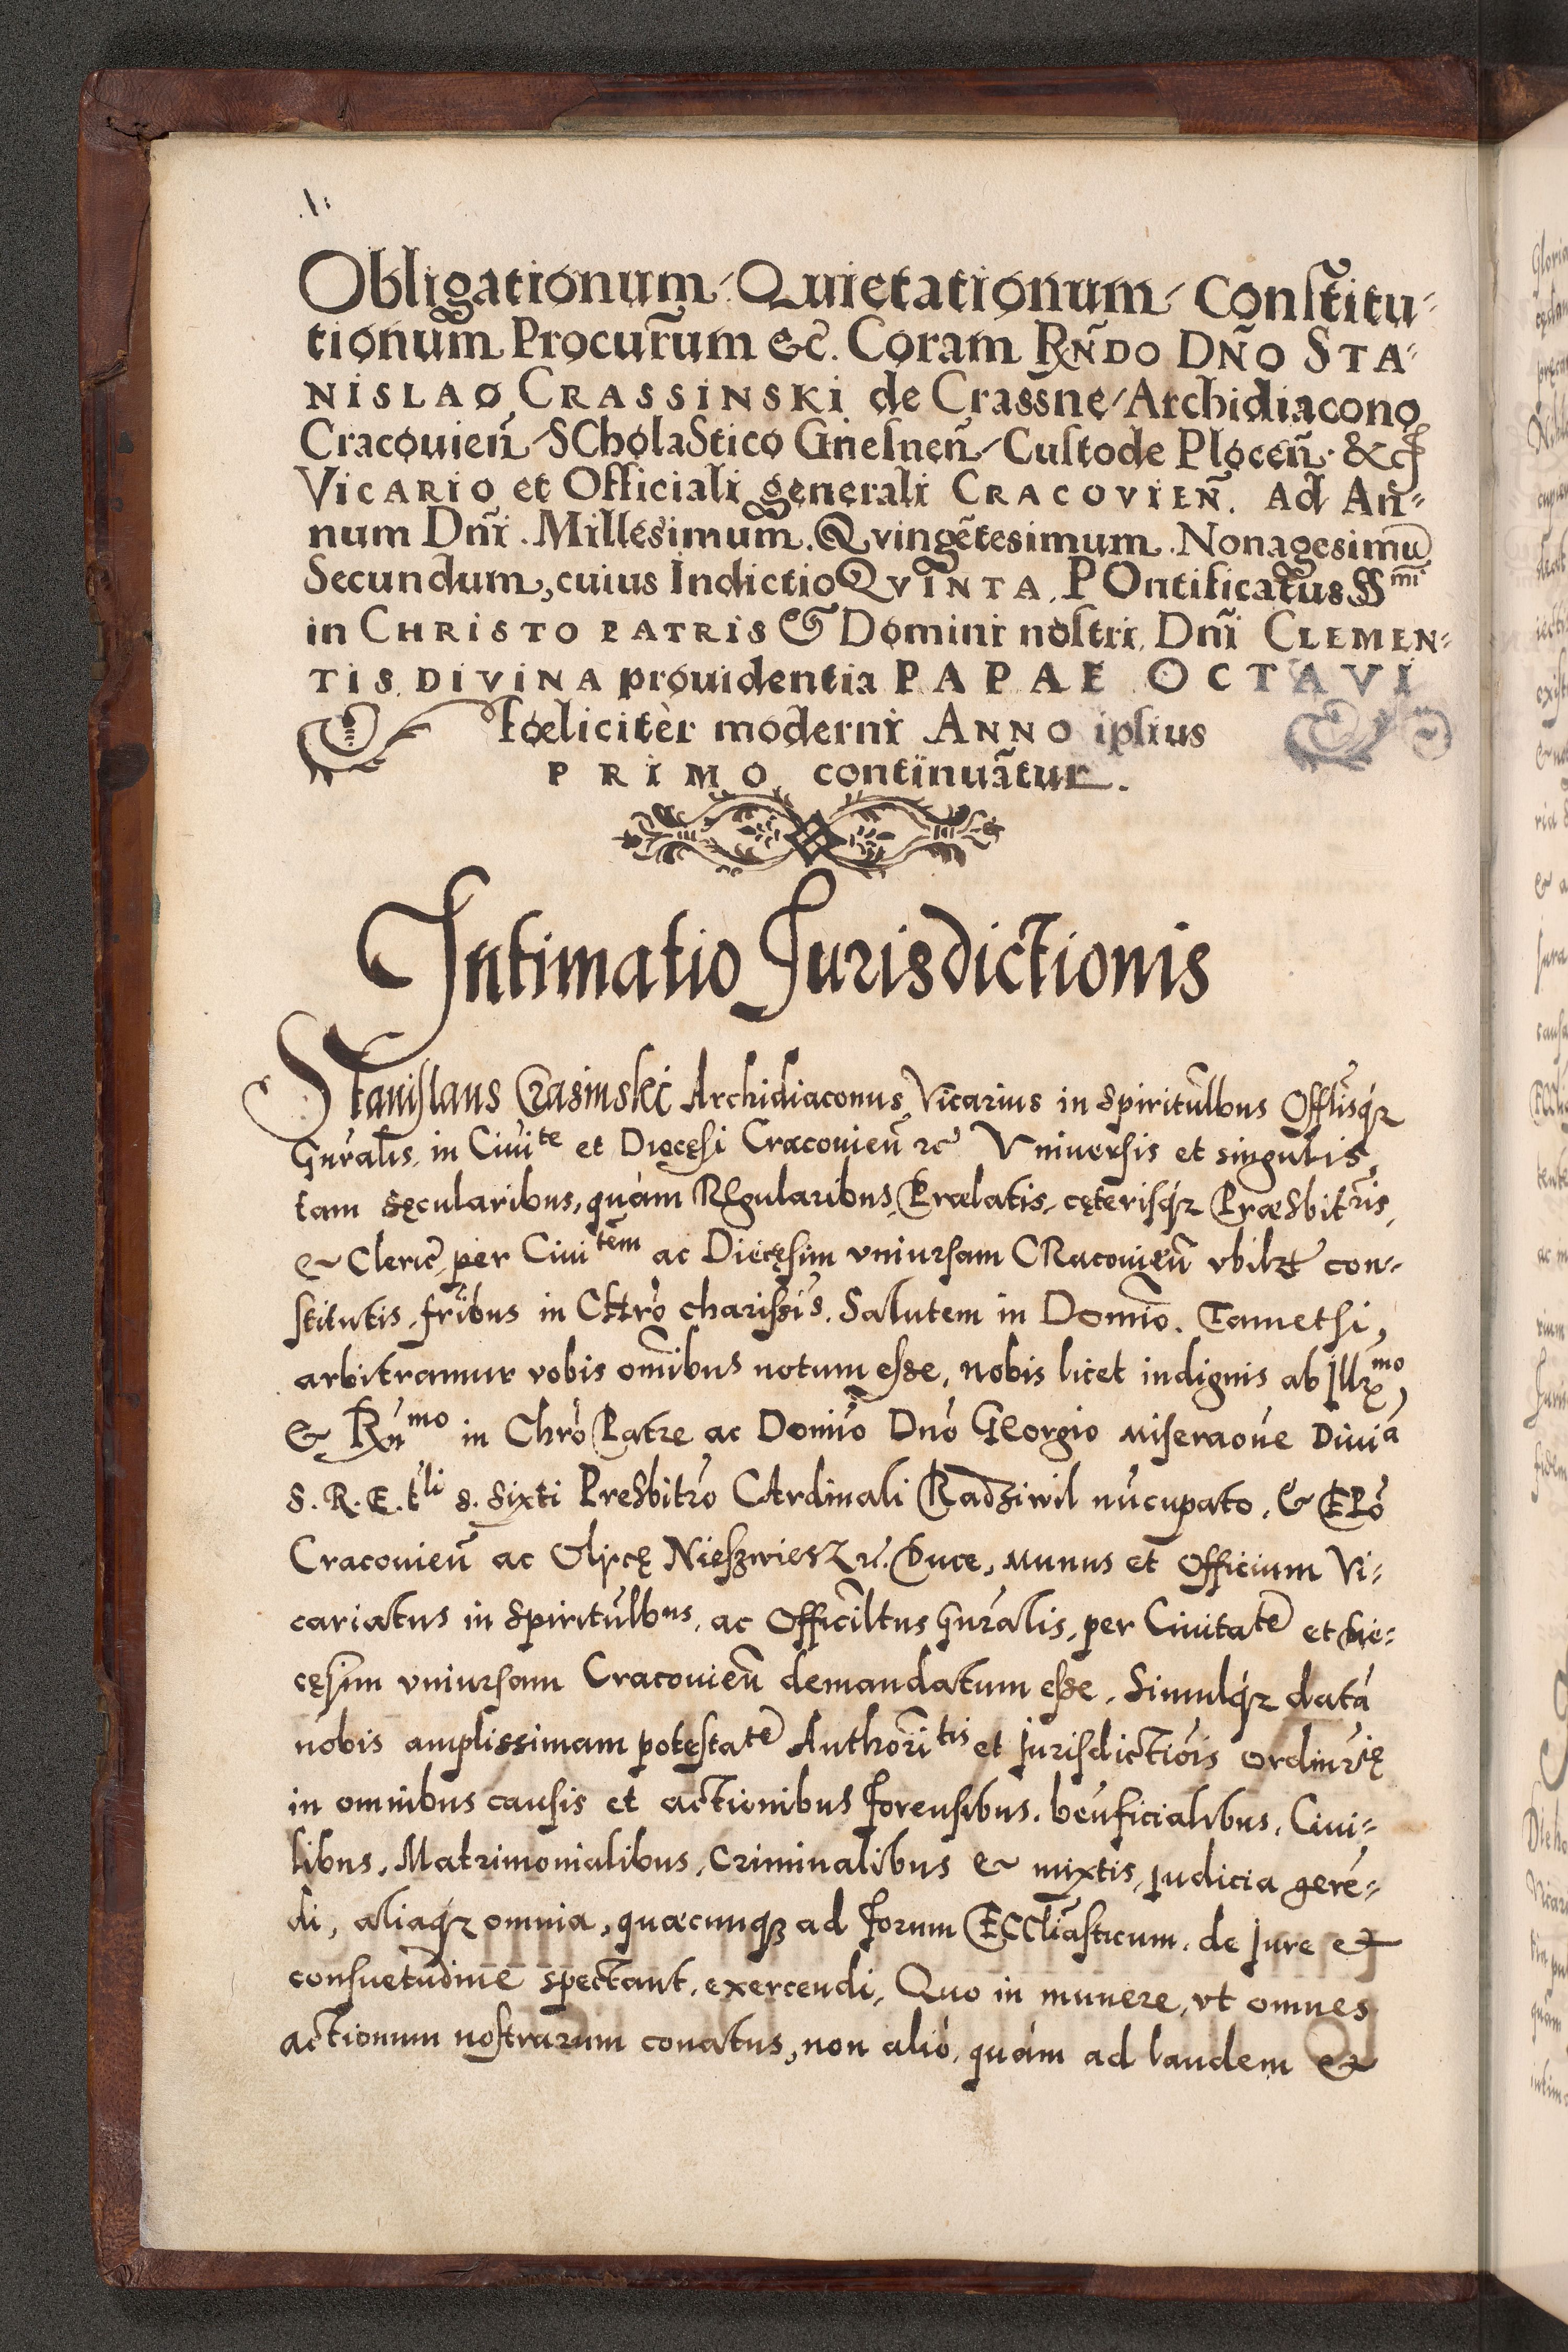 .1.
Obligationum, Quietationum, Constitu-
tionum Procur̃um &c̃. Coram Rñdo Dño Sta-
nislao Crassinski de Crassne, Archidiacono
Cracouieñ, Scholastico Gnesneñ, Custode Ploceñ. &c
Vicario et Officiali generali Cracovieñ. Ad An-
num Dñi. Millesimum. Qvingẽtesimum. Nonagesimũ
Secundum, cuius Indictio Qvinta. Pontificatus SSmi
in Christo Patris & Domini nostri, Dñi Clemen-
tis divina prouidentia PAPAE OCTAVI
fœlicitèr moderni Anno ipsius
PRIMO continuãtur.
Intimatio Jurisdictionis
Stanislaus Crasinski Archidiaconus, Vicarius in Spiritũlbus Offlisq̃z
Gñralis, in Ciuite et Diocęsi Cracouieñ &c̃ Vniuersis et singulis,
tam sęcularibus, quàm Regularibus, Prælatis, cęterisq̃z Præsbitris,
& Cleric̃, per Ciuitem ac Diecęsim vniuersam Cracouieñ vbilzt con-
stitutis, fribus in Chrõ charissis. Salutem in Domĩo. Tametsi,
arbitramur vobis omĩbus notum esse, nobis licet indignis ab Illrmo,
& Rñmo in Chrõ Patre ac Domĩo Dnõ Georgio Miseraõne Diuia
S. R. E. tli S. Sixti Presbitrõ Cardinali Radziwil nũcupato, & EPõ
Cracouieñ ac Olycę Nieszwiesz &c. Duce, munus et Officium Vi-
cariatus in Spiritũlbus, ac Officĩltus gñralis, per Ciuitatẽ et Die-
cęsim vniursam Cracouieñ demandatum esse, Simulq̃z datã
nobis amplissimam potestatẽ Authoritis et Jurisdictiõis ordinrię
in omnibus causis et actionibus forensibus, beñficialibus, Ciui-
libus, Matrimonialibus, Criminalibus & mixtis, judicia gerẽ-
di, aliaq̃z omnia, quæcunqz ad forum Eccliãsticum, de jure et
consuetudine spectant, exercendi, Quo in munere, vt omnes
actionum nostrarum conatus, non aliò, quàm ad laudem &